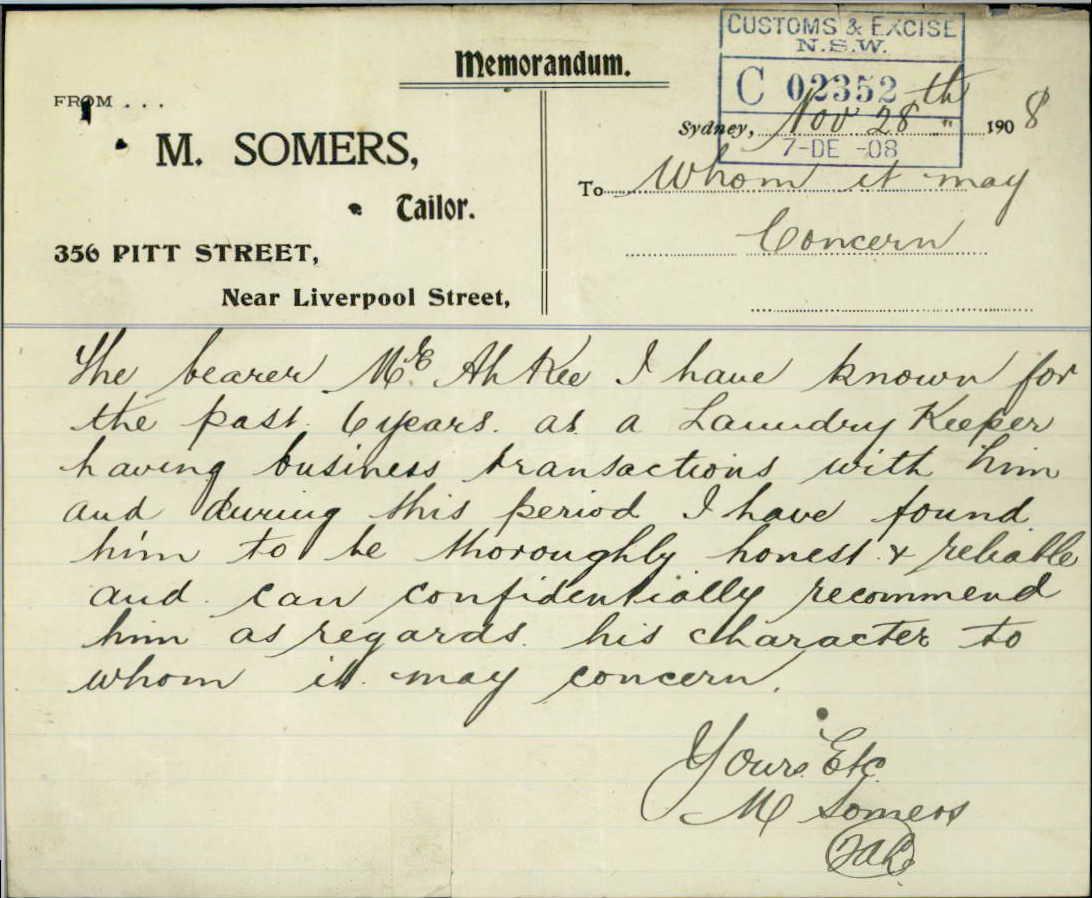 Memorandum.
CUSTOMS & EXCISE
N.S.W.
C 02352
7-DE-08
FROM . . .
M. SOMERS,
Tailor.
356 PITT STREET,
Near Liverpool Street,
Sydney, Nov 28th " 1908
To Whom it may
Concern
The bearer Mr Ah Kee I have known for
the past 6 years. as a Laundry Keeper
having business transactions with him
and during this period I have found
him to be thoroughly honest & reliable
and can confidentially recommend
him as regards his character to
whom it may concern.
Yours Etc.
M Somers